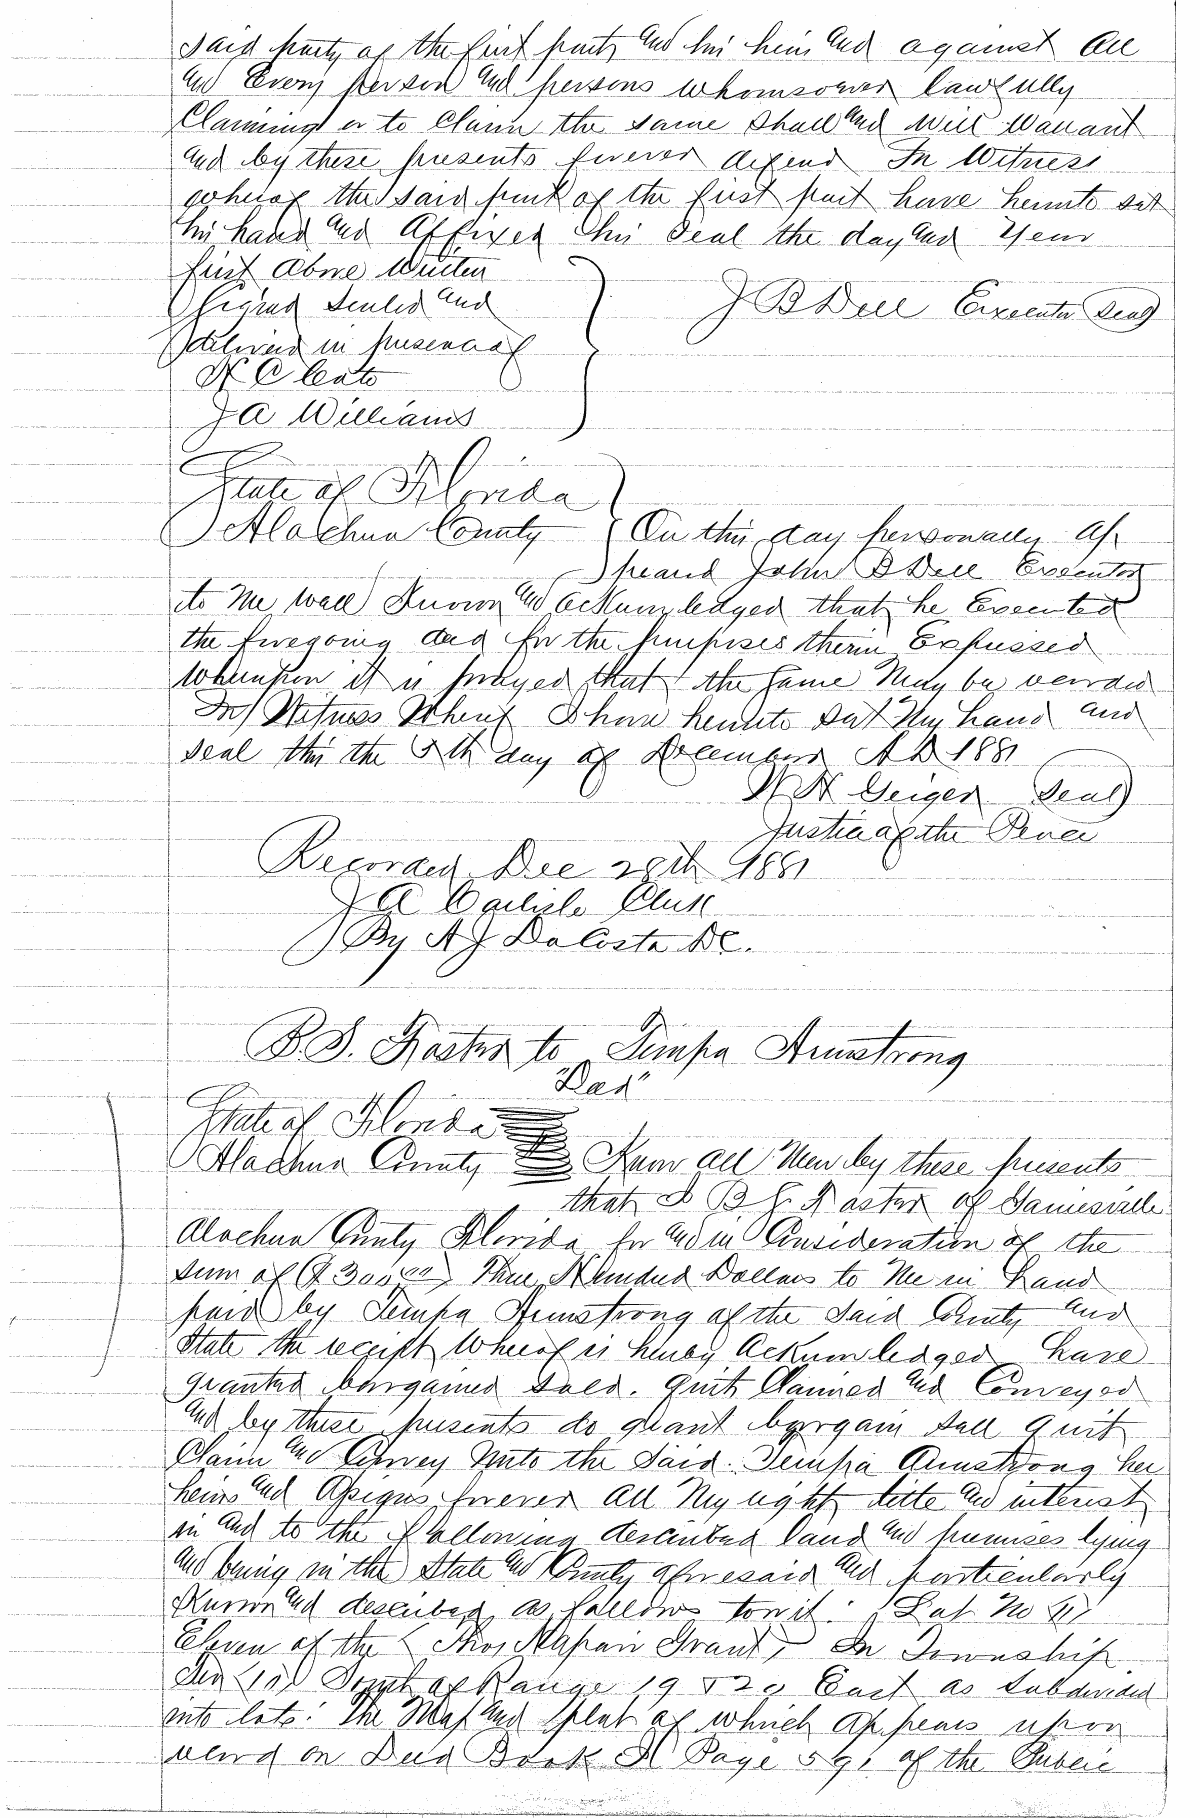 said party of the first part and his heirs and against all
and Every person and persons whomsoever lawfully
Claiming or to Claim the same shall and will Warrant
and by these presents forever defend In Witness
whereof the said part of the first part have hereunto set
his hand and Affixed his seal the day and Year
first Above Written
Signed Sealed and
delivered in presence of
J B Dell Executor (Seal)
N C Cato
J A Williams
State of Florida
Alachua County On this day personally Ap
peared John B Dell Executor
to Me well Known and acknowledged that he Executed
the foregoing deed for the purposes therin Expressed
Whereupon it is prayed that the same May be recorded
In Witness Whereof I have hereunto set My hand and
seal this the 5th day of December A D 1881
W H Geiger (Seal)
Justice of the Peace
Recorded Dec 28th 1881
J A Carlisle Clerk
By A J DaCosta D.C.
B. F. to Tempa Armstrong
"Deed"
State of Florida
Alachua County Know All Men by these presents
that I B F of Gainesville
Alachua County Florida for and in Consideration of the
sum of ($300.00) Three Hundred Dollars to Me in hand
paid by Tempa Armstrong of the Said County and
State the receipt Whereof is hereby Acknowledged have
granted bargained sold. quit Claimed and Conveyed
and by these presents do grant bargain sell quit
Claim and Convey Unto the Said. Tempa Armstrong her
heirs and Assigns forever All My right title and interest
in and to the following described land and premises lying
and being in the State and County aforesaid and particularly
Known and described as follows towit: (Lot No 11)
Eleven of the ( Thos Grant) In Township
Ten (10) South of Range 19 & 20 East as subdivided
into lots: The Map and plat of which Appears upon
record on Deed Book Page 591 of the Public